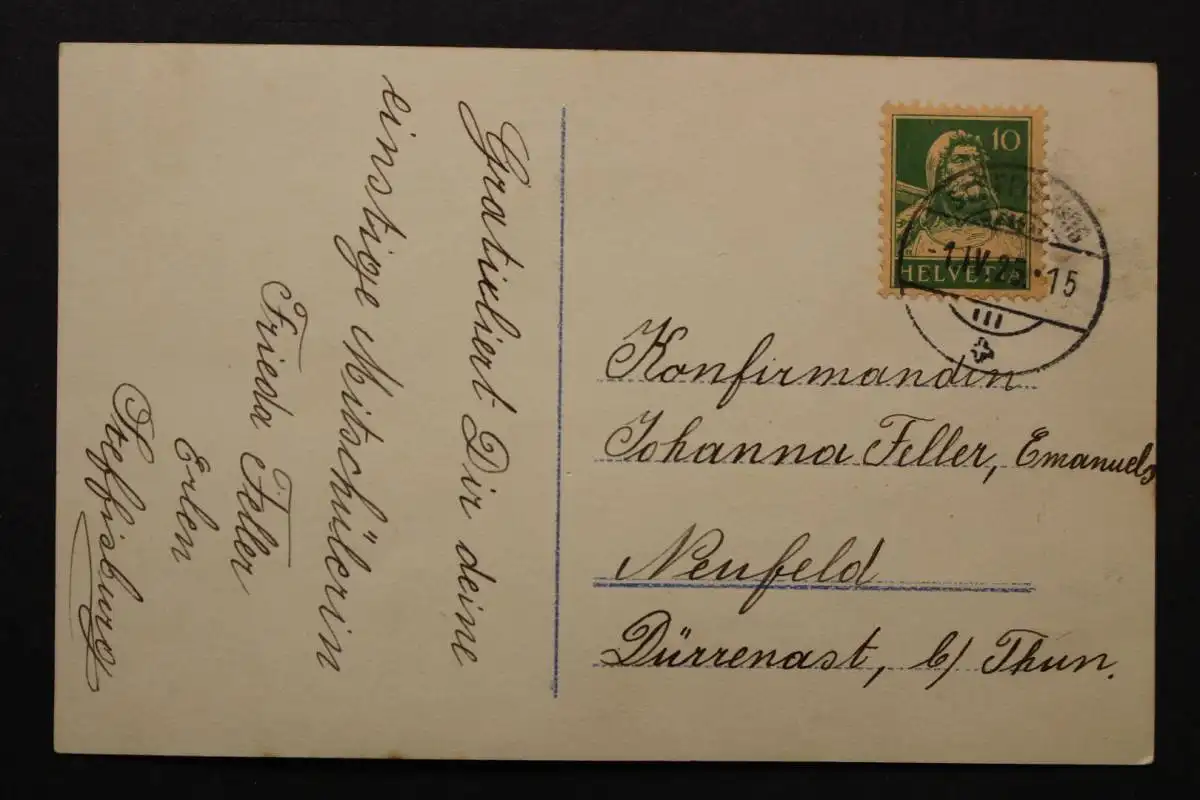 Gratuliert Dir deine
einstige Mitschülerin
Frieda Feller
Erlen
Steffisburg
10
HELVETIA
-1.IV.2 •15
III
Konfirmandin
Johanna Feller, Emanuels
Neufeld
Dürrenast, b/ Thun.